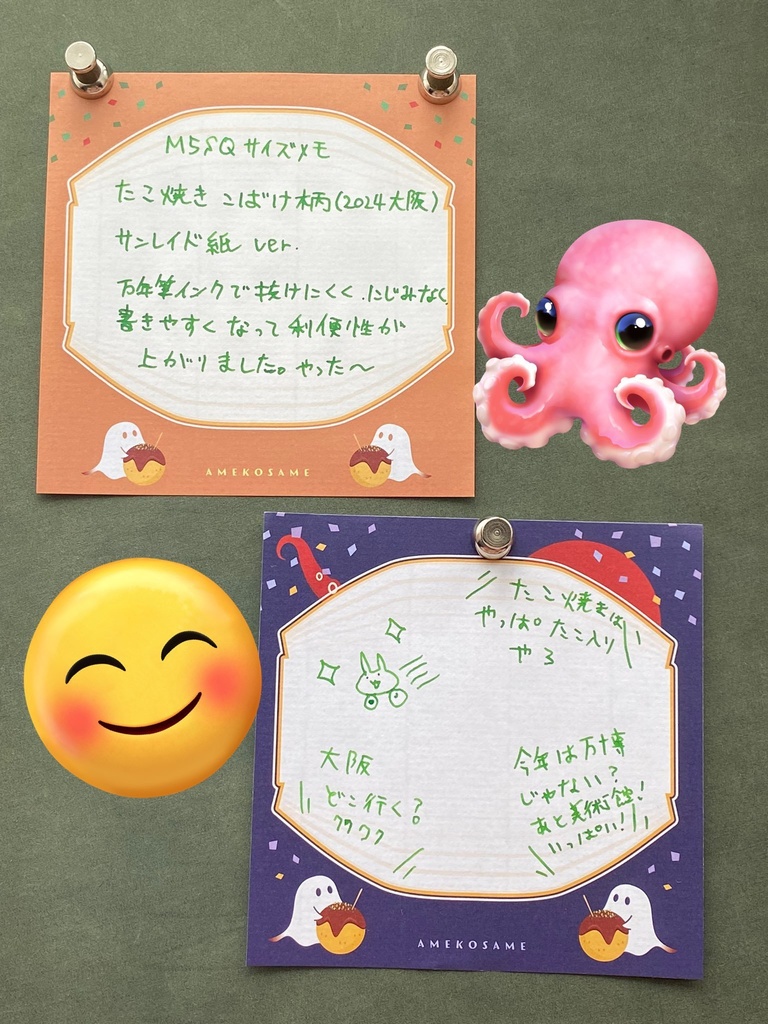 M5SQ サイズメモ
たこ焼き こばけ柄(2024大阪)
サンレイド紙 ver.
万年筆インクで抜けにくく、にじみなく
書きやすくなって利便性が
上がりました。やった〜
AMEKOSAME
たこ焼きは
やっぱ。たこ入り
やろ
大阪
どこ行く?
ワクワク
今年は万博
じゃない?
あと美術館!
いっぱい!
AMEKOSAME